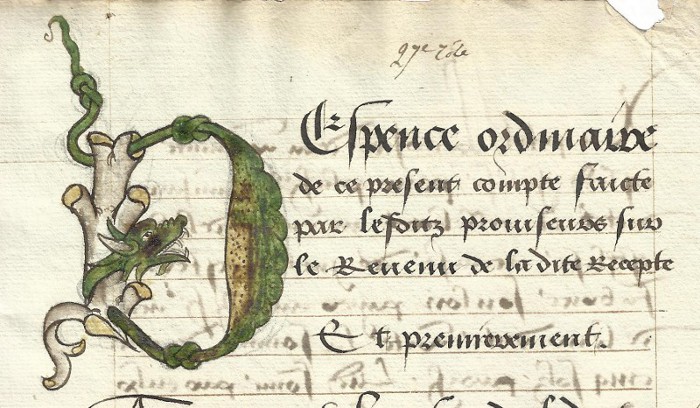 DEspence ordinaire
de ce present compte faicte
par lesditz proviseurs sur
le Revenu de ladite Recepte
Et premierement.